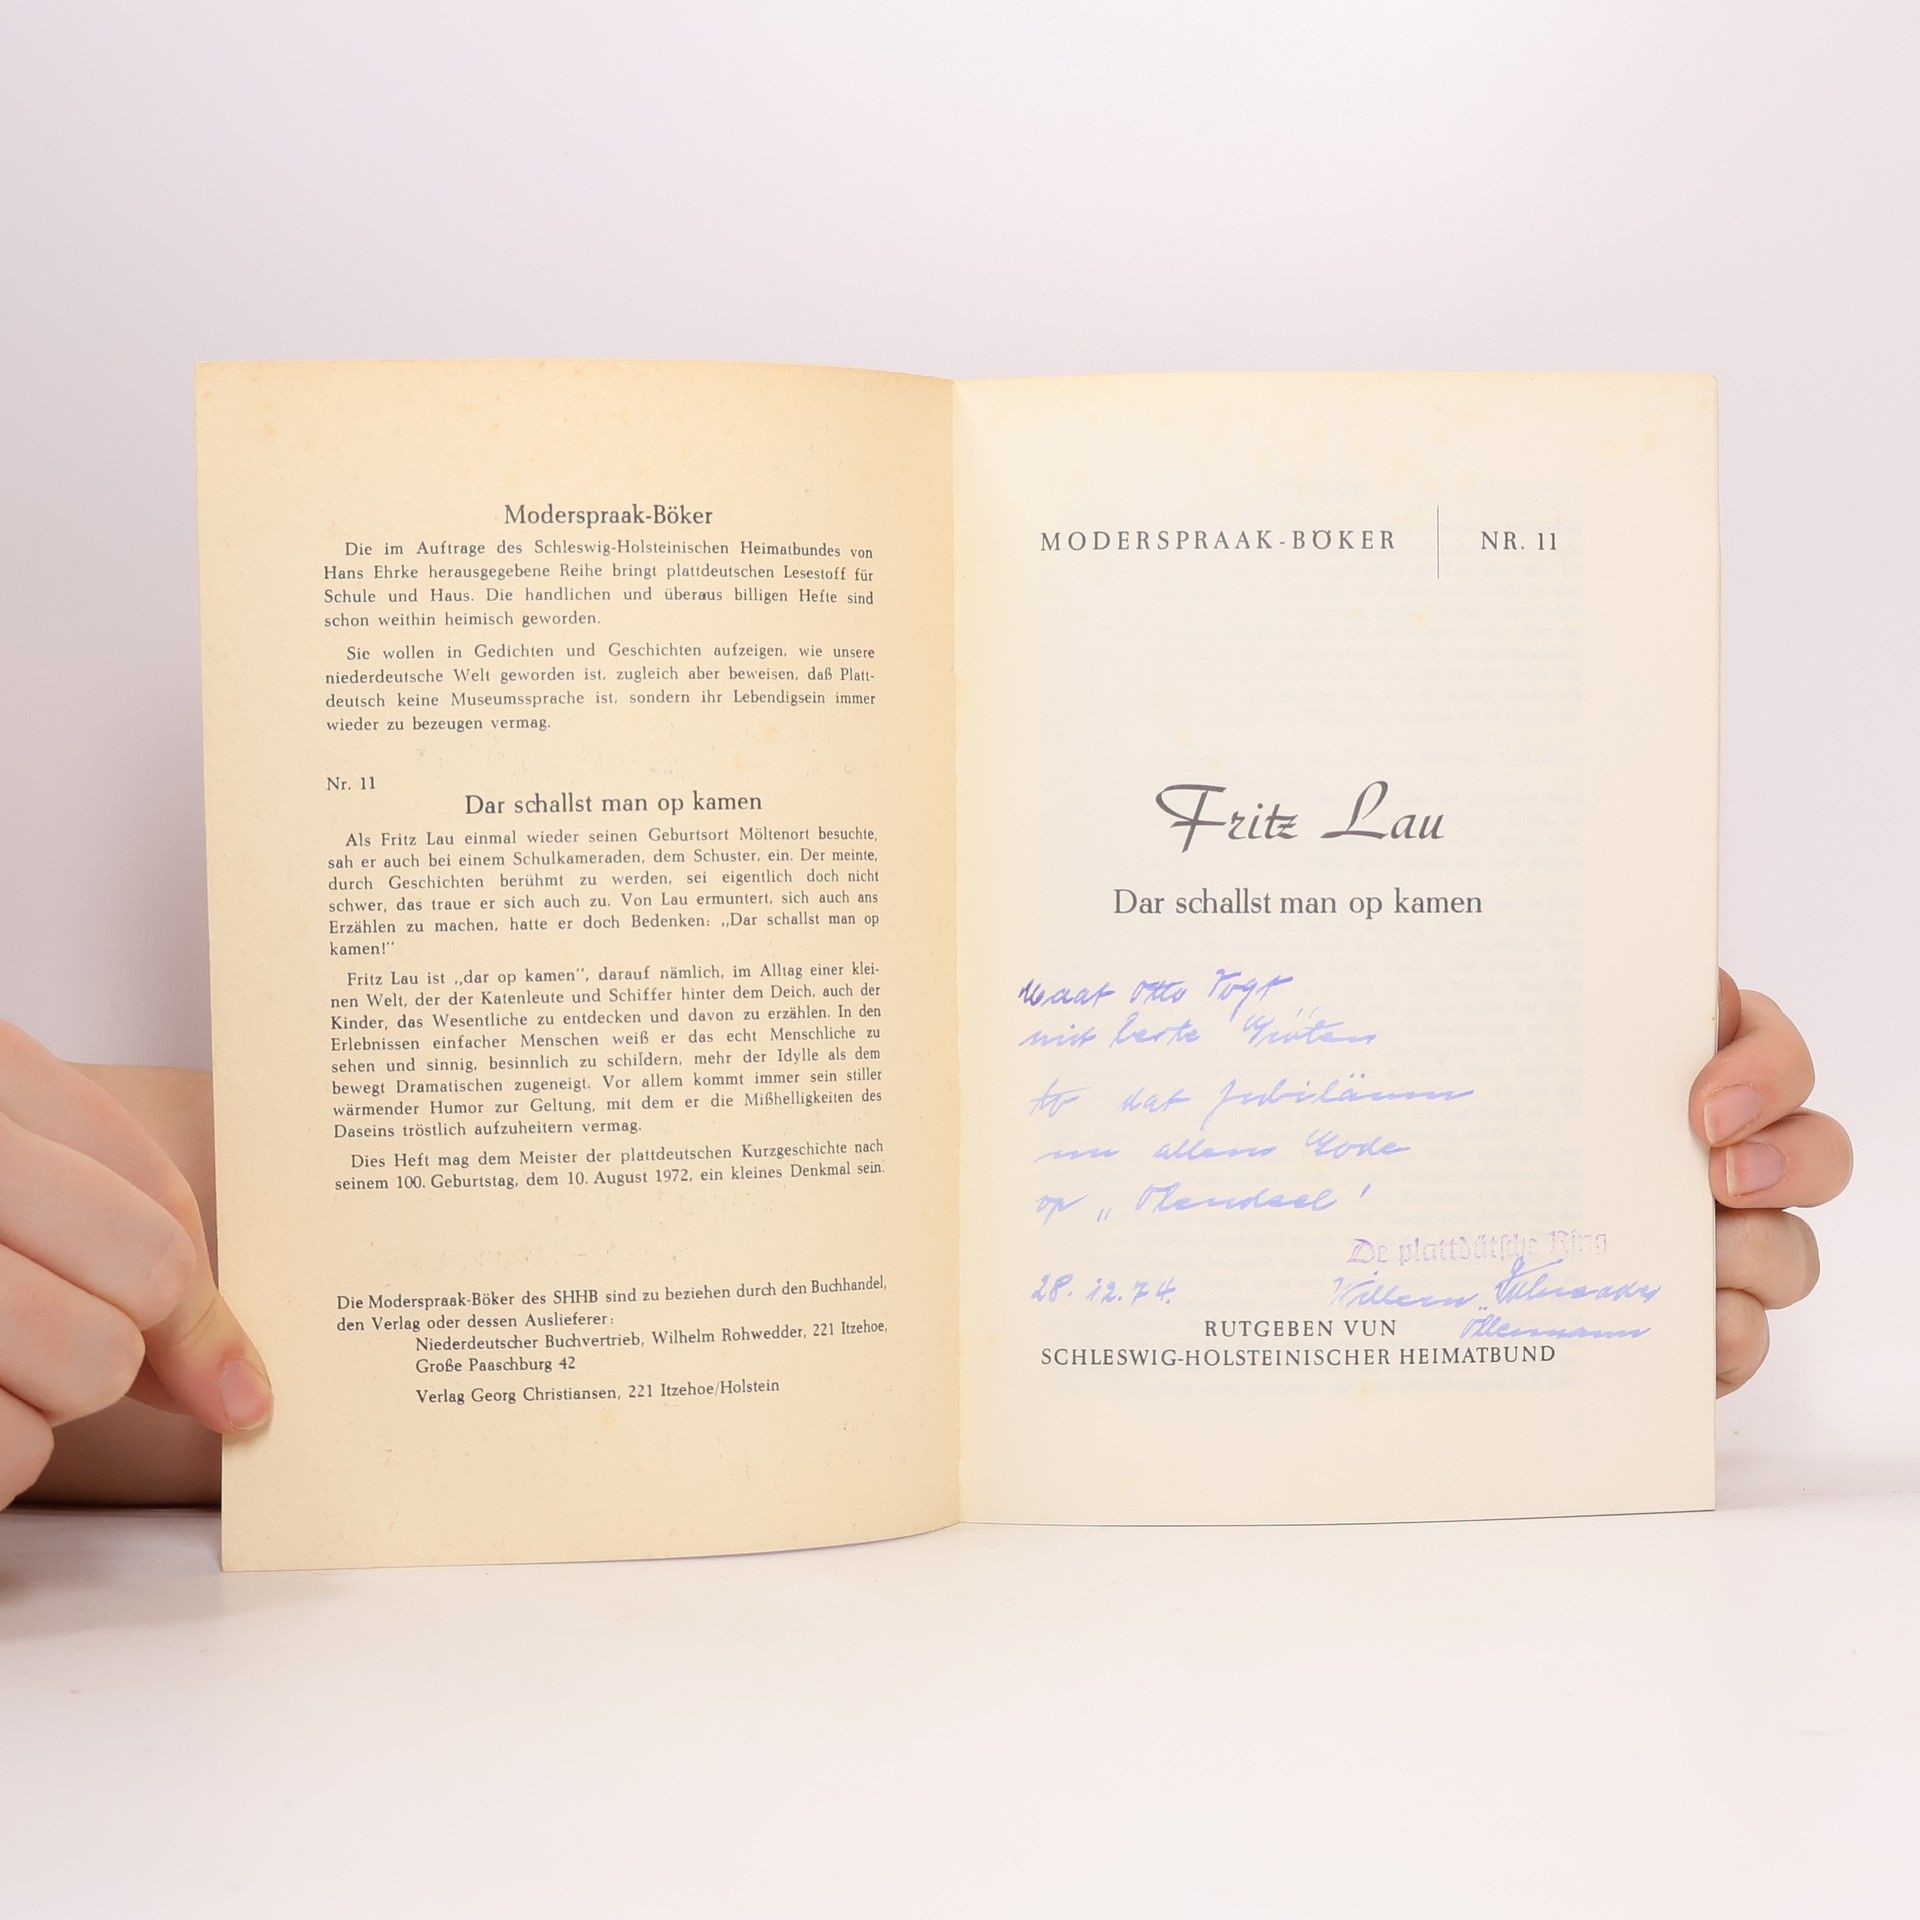 Moderspraak-Böker
Die im Auftrage des Schleswig-Holsteinischen Heimatbundes von
Hans Ehrke herausgegebene Reihe bringt plattdeutschen Lesestoff für
Schule und Haus. Die handlichen und überaus billigen Hefte sind
schon weithin heimisch geworden.
Sie wollen in Gedichten und Geschichten aufzeigen, wie unsere
niederdeutsche Welt geworden ist, zugleich aber beweisen, daß Platt-
deutsch keine Museumssprache ist, sondern ihr Lebendigsein immer
wieder zu bezeugen vermag.
Nr. 11
Dar schallst man op kamen
Als Fritz Lau einmal wieder seinen Geburtsort Möltenort besuchte,
sah er auch bei einem Schulkameraden, dem Schuster, ein. Der meinte,
durch Geschichten berühmt zu werden, sei eigentlich doch nicht
schwer, das traue er sich auch zu. Von Lau ermuntert, sich auch ans
Erzählen zu machen, hatte er doch Bedenken: „Dar schallst man op
kamen!“
Fritz Lau ist „dar op kamen“, darauf nämlich, im Alltag einer klei-
nen Welt, der der Katenleute und Schiffer hinter dem Deich, auch der
Kinder, das Wesentliche zu entdecken und davon zu erzählen. In den
Erlebnissen einfacher Menschen weiß er das echt Menschliche zu
sehen und sinnig, besinnlich zu schildern, mehr der Idylle als dem
bewegt Dramatischen zugeneigt. Vor allem kommt immer sein stiller
wärmender Humor zur Geltung, mit dem er die Mißhelligkeiten des
Daseins tröstlich aufzuheitern vermag.
Dies Heft mag dem Meister der plattdeutschen Kurzgeschichte nach
seinem 100. Geburtstag, dem 10. August 1972, ein kleines Denkmal sein.
Die Moderspraak-Böker des SHHB sind zu beziehen durch den Buchhandel,
den Verlag oder dessen Auslieferer:
Niederdeutscher Buchvertrieb, Wilhelm Rohwedder, 221 Itzehoe,
Große Paaschburg 42
Verlag Georg Christiansen, 221 Itzehoe/Holstein
MODERSPRAAK-BÖKER NR. 11
Fritz Lau
Dar schallst man op kamen
Maat Otto Vogt
mit beste Gröten
to dat Jubiläum
un allens Gode
op
De plattdütsche Ring
28.12.74. Willem
Öllermann
RUTGEBEN VUN
SCHLESWIG-HOLSTEINISCHER HEIMATBUND